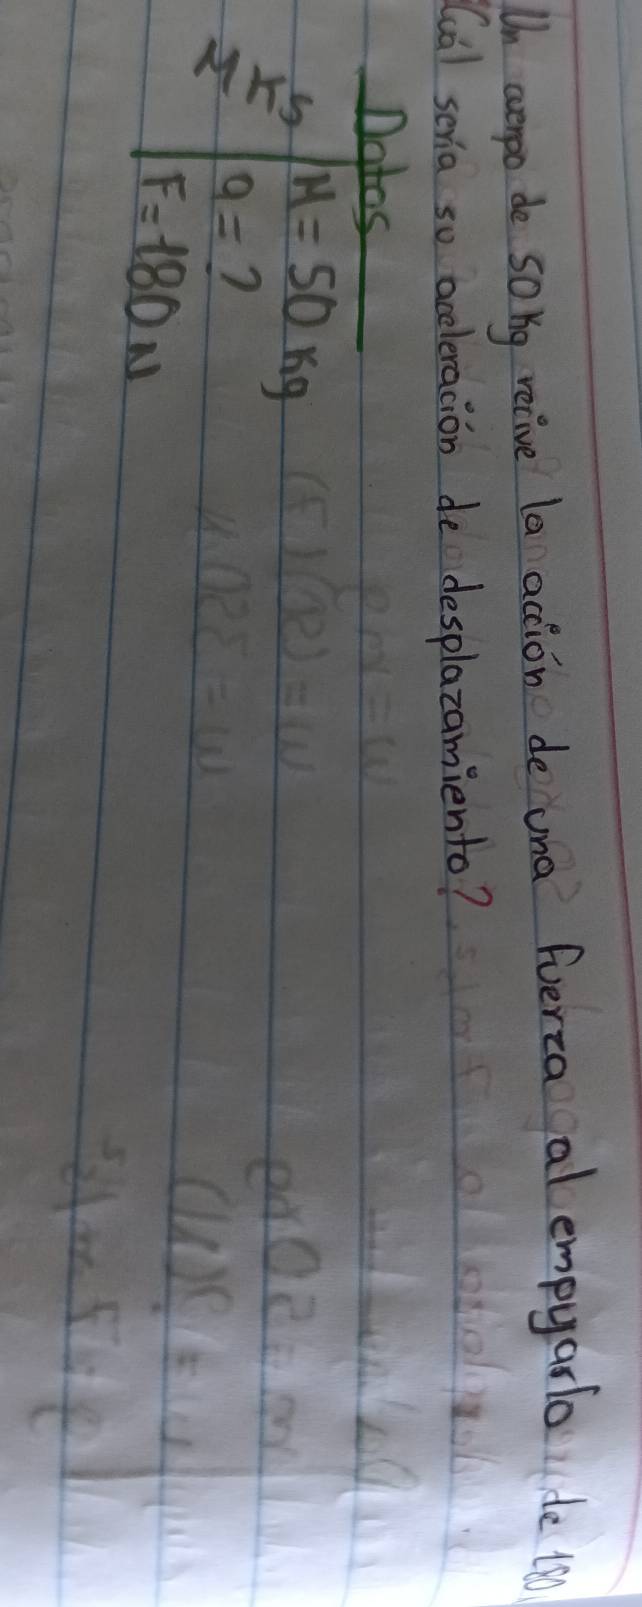 Un cuerpo de 50 Kg recive la acción de una fuerza al empujarlo de 180
Cuál sería su aceleración de desplazamiento?
Datos
M = 50 Kg
a = ?
F = 180 N